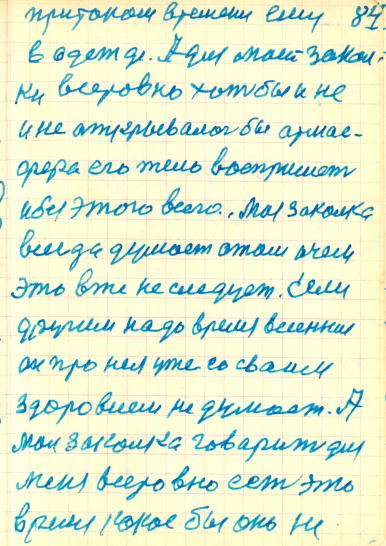 притокам времени ему 84.
в одежде. А для моей закал-
ки всеровно хотябы и не
и не открывалог бы атмас-
фера его тело восприимет
ибез этого всего. Моя закалка
всегда думает отом очем
это вже не следует. Если
другим надо время веменни
он про нея уже со своим
здоровием не думает. А
моя закалка говорит для
меня всеровно есть это
время какое бы оно не